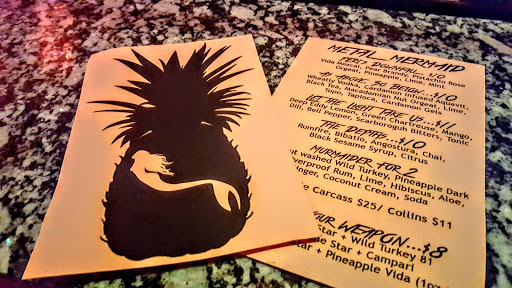 METAL MERMAID
PERIS DOWNFALL $10
Vida Mezcal, Pear Brandy, Pistachio Rose
Orgeat, Pineapple, Lime, Mint
AS ABOVE, SO BELOW...$10
Wheatly Vodka, Cardamon Infused Aquavit,
Black Tea, Macadamian Nut Orgeat, Lime,
Tonic, Tapioca, Cardamon Gels
LET THE LIGHT TAKE US...$11
Deep Eddy Lemon, Green Chartreuse, Mango,
Dill, Boll Pepper, Scarborough Bitters, Tonic
THE DEPTHS...$10
Rumfire, Bibatto, Angostura, Chai,
Black Sesame Syrup, Citrus
MURMAIDER FOR 2
ut washed Wild Turkey, Pineapple Dark
verproof Rum, Lime, Hibiscus, Aloe,
nger, Coconut Cream, Soda
e Carcass $25/ Collins $11
UR WEAPON...$8
Star + Wild Turkey 81
e Star + Campari
tar + Pineapple Vida (1oz